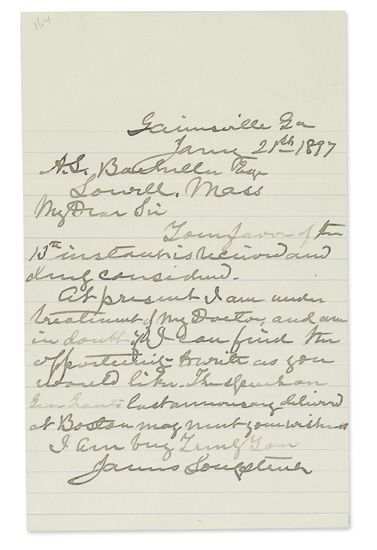 164
Gainesville Ga
Jany 21th 1897
A.S. Batchellor Esqr
Lowell, Mass
My Dear Sir
Your favor of the
15th instant is received and
duly considered.
At present I am under
treatment of my Doctor, and am
in doubt if I can find the
opportunity to write as you
would like. The speech on
Gen Grants last anniversary delivered
at Boston may meet your wishes
I am very Truly Your
James Longstreet